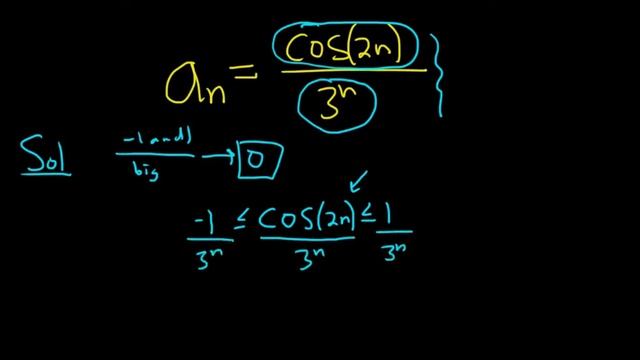 aₙ = cos(2n) / 3ⁿ
Sol -1 and 1 / big → 0
-1/3ⁿ ≤ cos(2n)/3ⁿ ≤ 1/3ⁿ